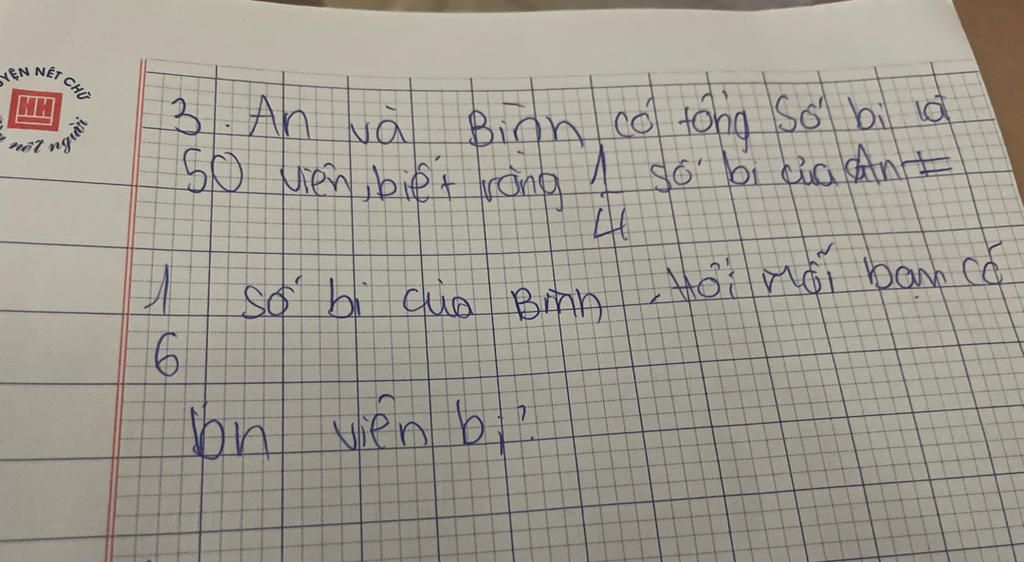 YỆN NÉT CHỮ
HH
nết người
3. An và Bình có tổng số bi là
50 viên, biết rằng 1 số bi của An =
4
1 số bi của Bình. Hỏi mỗi bạn có
6
bn viên bi?